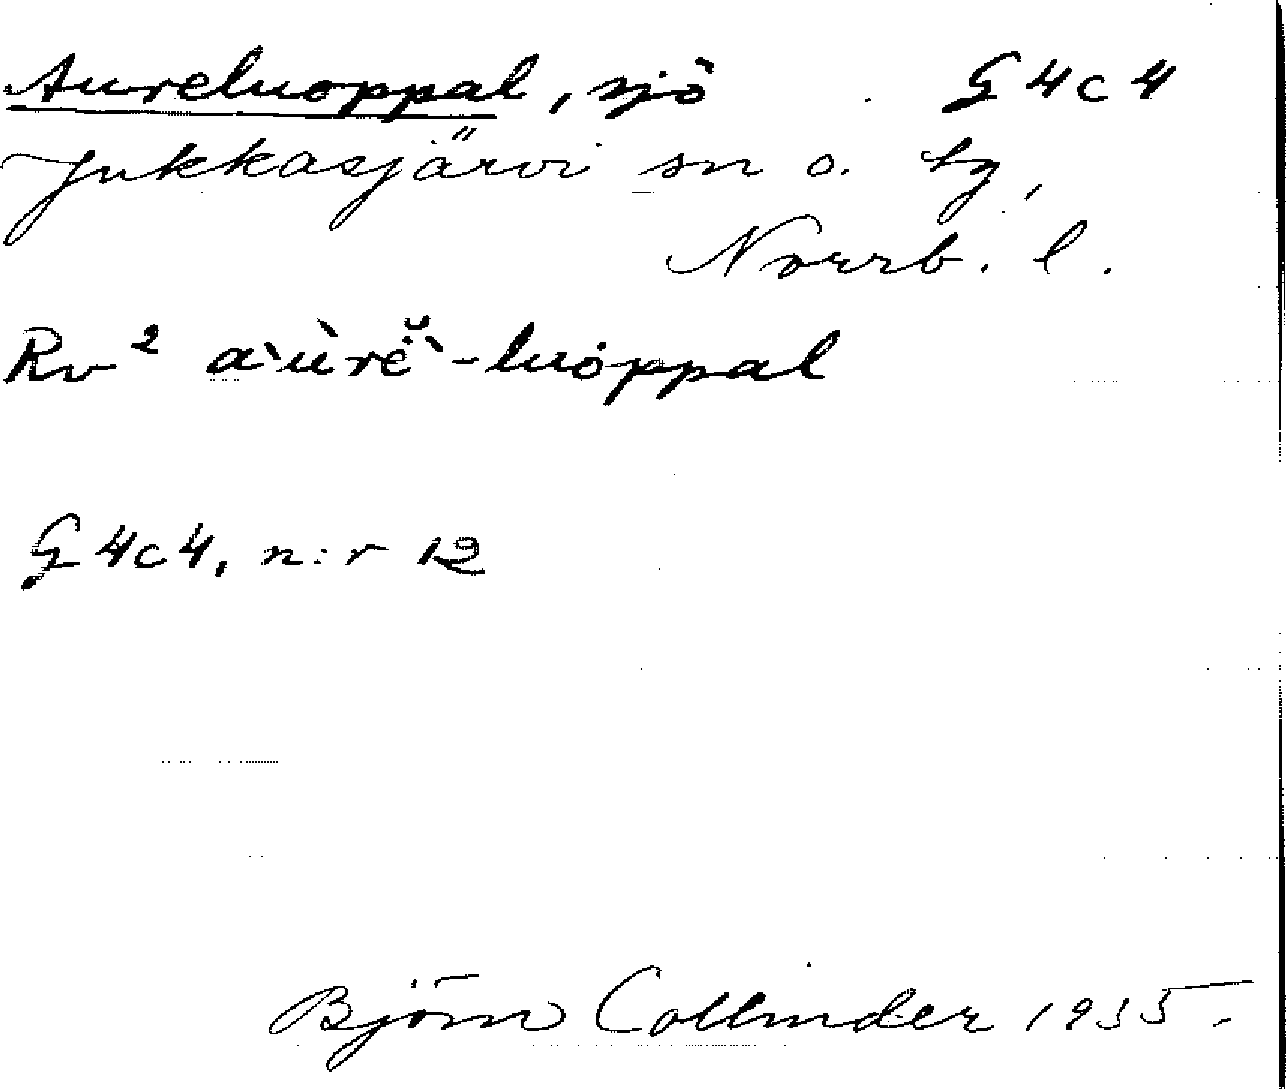 Aureluoppal, sjö G 4 c 4
Jukkasjärvi sn o. tg,
Norrb. l.
Rv² a`ùrĕ̀`-luòppal
G 4c4, n:r 12
Björn Collinder 1935.